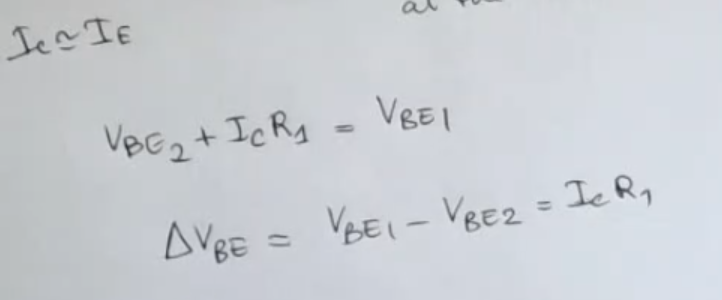 I_C ≃ I_E
V_BE2 + I_C R_1 = V_BE1
ΔV_BE = V_BE1 - V_BE2 = I_C R_1